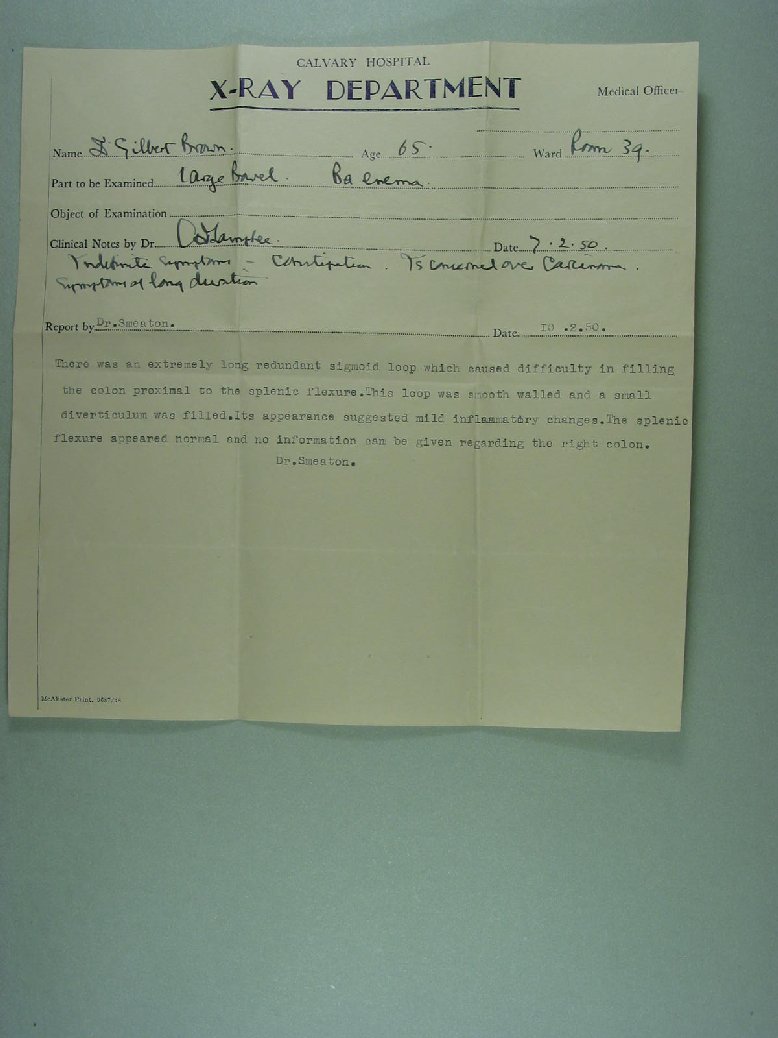 CALVARY HOSPITAL
X-RAY DEPARTMENT
Medical Officer
Name Gilbert Brown. Age 65. Ward Room 39.
Part to be Examined Large Bowel. Ba enema.
Object of Examination
Clinical Notes by Dr. Date 7.2.50.
Indefinite symptoms – Constipation. Is concerned over Carcinoma.
Symptoms of long duration
Report by Dr.Smeaton. Date I0 .2.50.
There was an extremely long redundant sigmoid loop which caused difficulty in filling
the colon proximal to the splenic flexure.This loop was smooth walled and a small
diverticulum was filled.Its appearance suggested mild inflammatory changes.The splenic
flexure appeared normal and no information can be given regarding the right colon.
Dr.Smeaton.
Print.